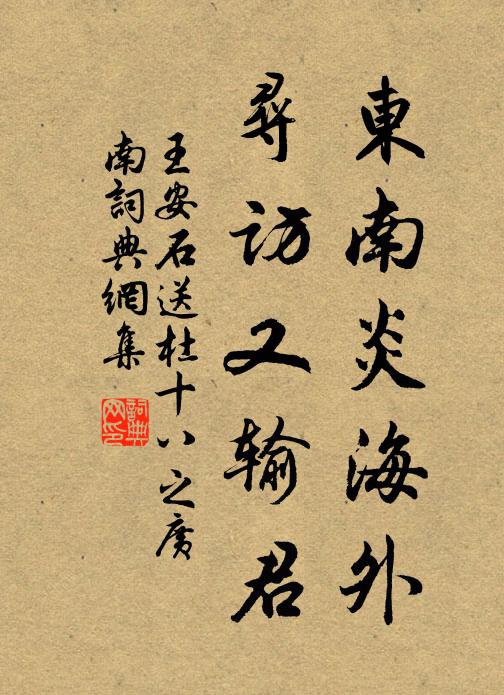 東南炎海外
尋訪又輸君
王安石送杜十八之廣
南詞典網集
詞典
网印